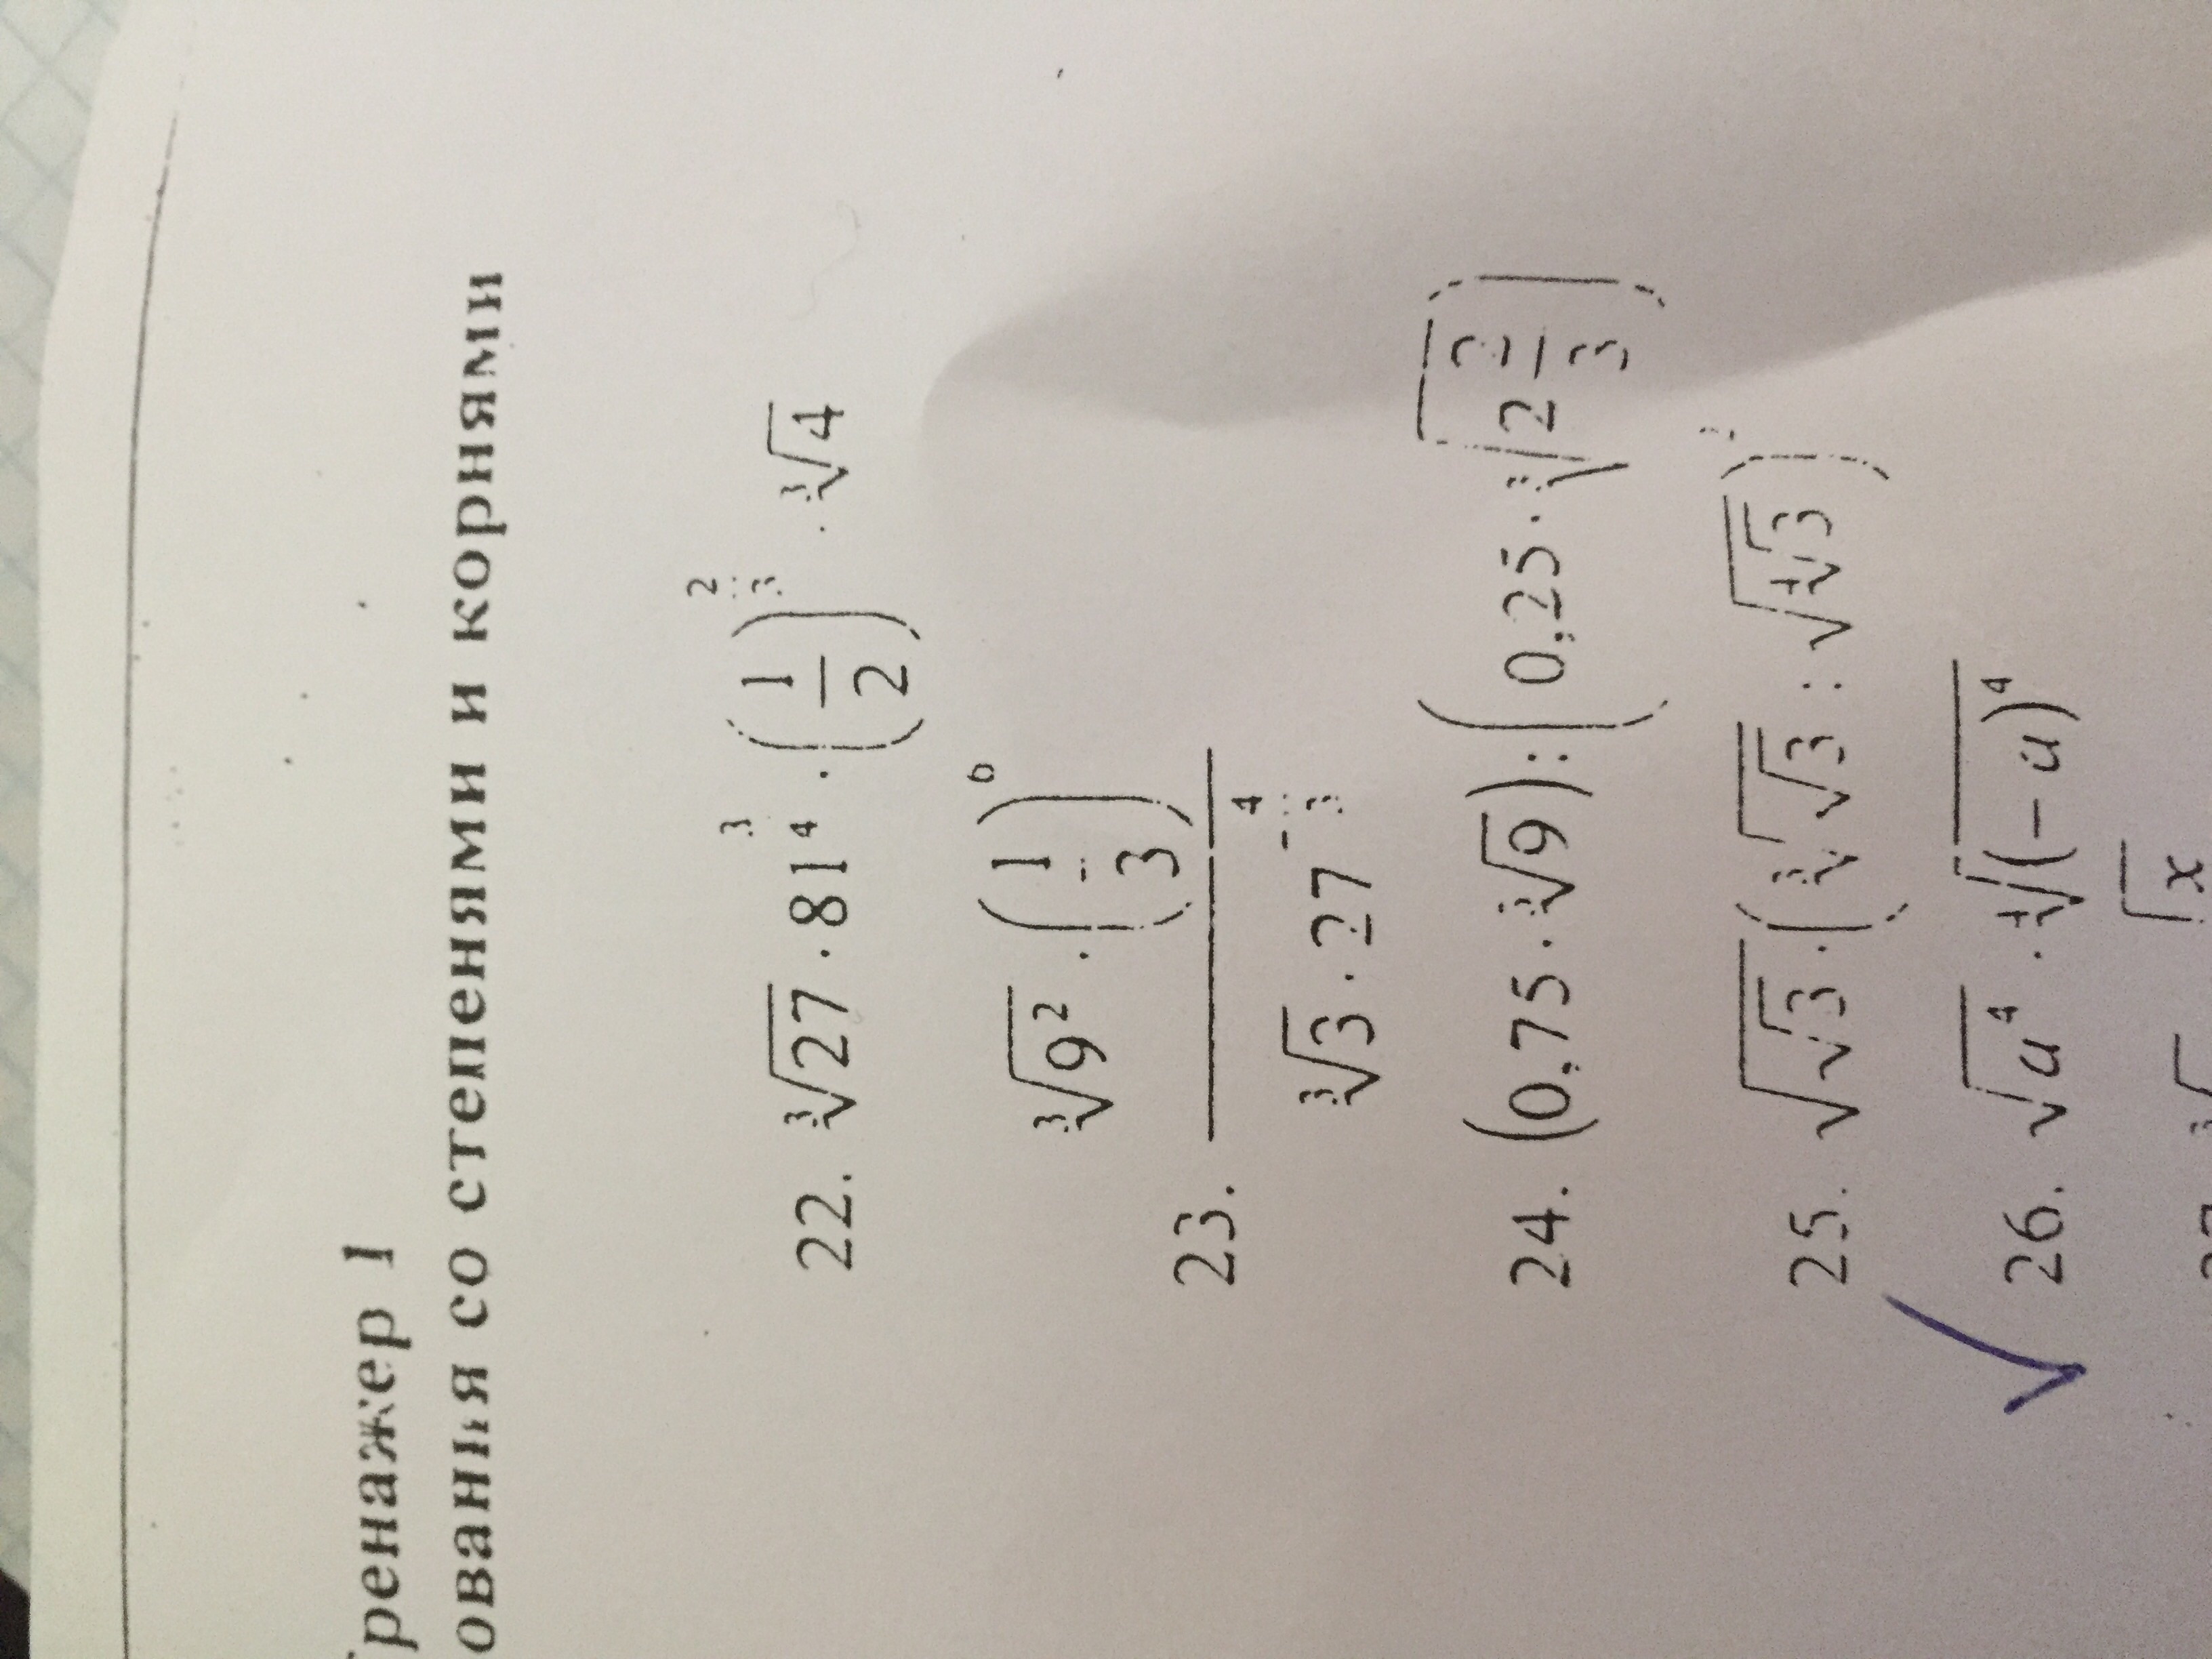 Тренажер 1
ования со степенями и корнями
22. ∛27 · 81^(3/4) · (1/2)^(2/3) · ∛4
23. (∛(9²) · (1/3)^6) / (∛3 · 27^(-4/3))
24. (0,75 · ∛9) : (0,25 · ∛(2 2/3))
25. √√3 · (∛√3 : √∜3)
26. √a⁴ · ∜((- a)⁴)
x